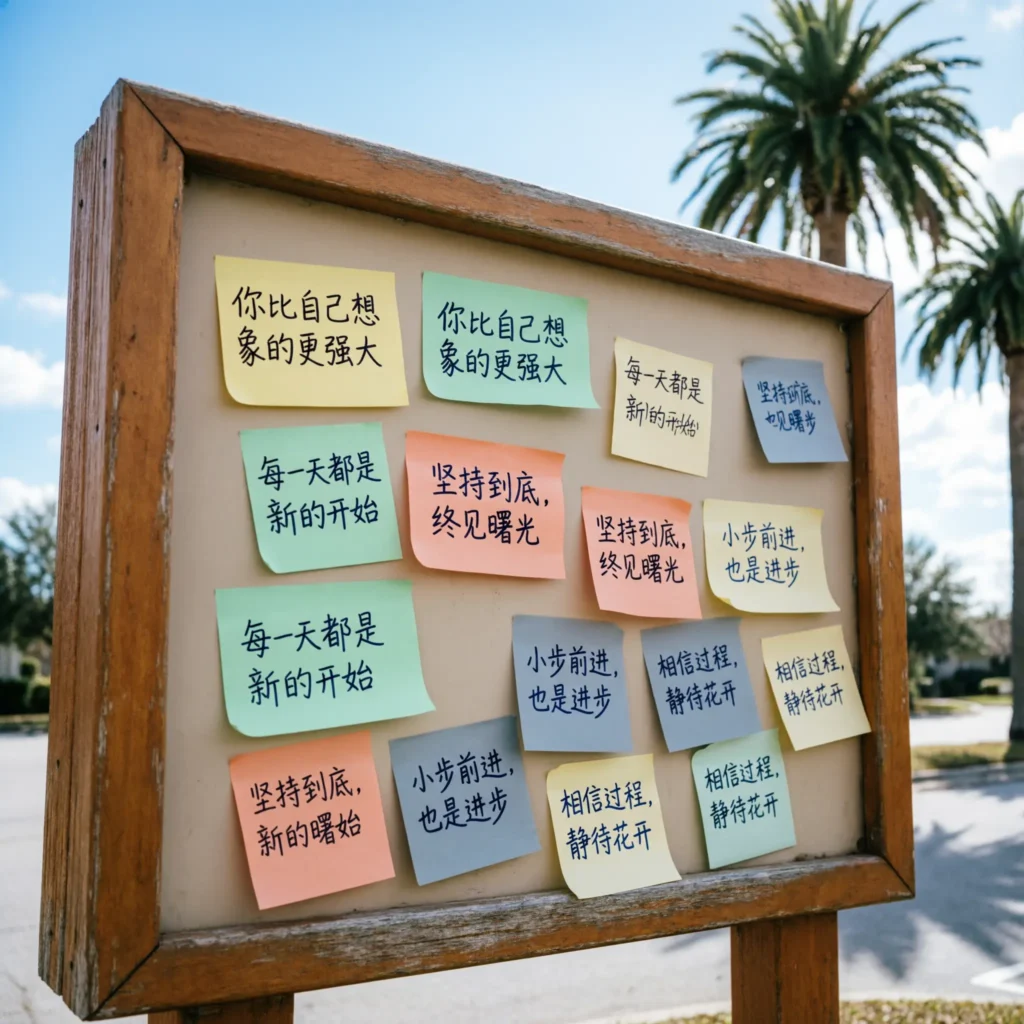 你比自己想
象的更强大
你比自己想
象的更强大
每一天都是
新的开始
坚持到底,
也见曙步
每一天都是
新的开始
坚持到底,
终见曙光
坚持到底,
终见曙光
小步前进,
也是进步
每一天都是
新的开始
小步前进,
也是进步
相信过程,
静待花开
相信过程,
静待花开
坚持到底,
新的曙始
小步前进,
也是进步
相信过程,
静待花开
相信过程,
静待花开